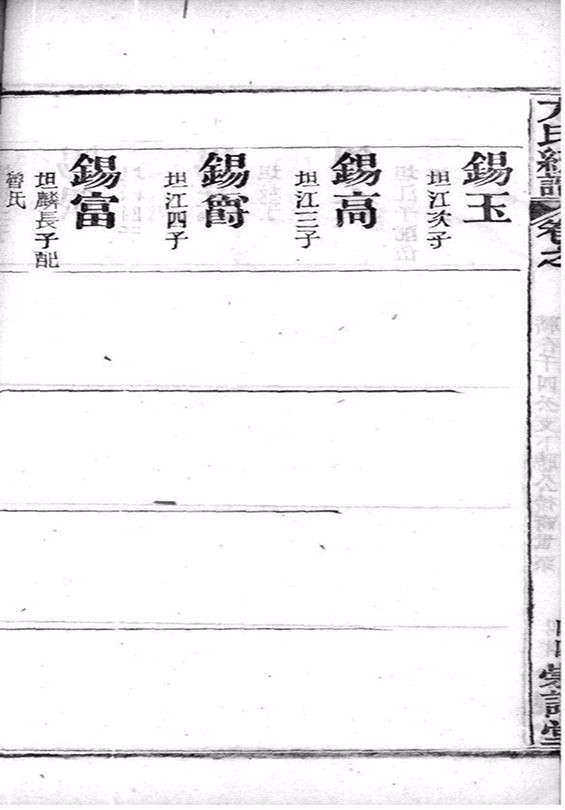 卷之
錫玉
坦江次子
錫高
坦江三子
錫爵
坦江四子
錫富
坦麟長子配
魯氏